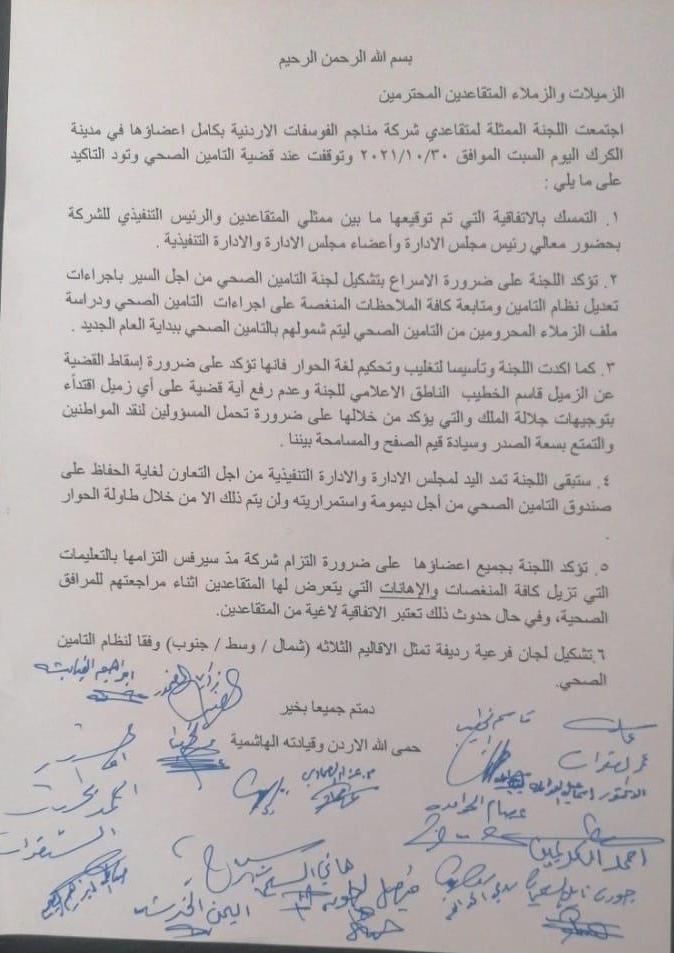 بسم الله الرحمن الرحيم
الزميلات والزملاء المتقاعدين المحترمين
اجتمعت اللجنة الممثلة لمتقاعدي شركة مناجم الفوسفات الاردنية بكامل اعضاؤها في مدينة
الكرك اليوم السبت الموافق ٢٠٢١/١٠/٣٠ وتوقفت عند قضية التامين الصحي وتود التاكيد
على ما يلي :
١. التمسك بالاتفاقية التي تم توقيعها ما بين ممثلي المتقاعدين والرئيس التنفيذي للشركة
بحضور معالي رئيس مجلس الادارة وأعضاء مجلس الادارة والادارة التنفيذية .
٢. تؤكد اللجنة على ضرورة الاسراع بتشكيل لجنة التامين الصحي من اجل السير باجراءات
تعديل نظام التامين ومتابعة كافة الملاحظات المنغصة على اجراءات التامين الصحي ودراسة
ملف الزملاء المحرومين من التامين الصحي ليتم شمولهم بالتامين الصحي ببداية العام الجديد .
٣. كما اكدت اللجنة وتأسيسا لتغليب وتحكيم لغة الحوار فانها تؤكد على ضرورة إسقاط القضية
عن الزميل قاسم الخطيب الناطق الاعلامي للجنة وعدم رفع آية قضية على أي زميل اقتداًء
بتوجيهات جلالة الملك والتي يؤكد من خلالها على ضرورة تحمل المسؤولين لنقد المواطنين
والتمتع بسعة الصدر وسيادة قيم الصفح والمسامحة بيننا .
٤. ستبقى اللجنة تمد اليد لمجلس الادارة والادارة التنفيذية من اجل التعاون لغاية الحفاظ على
صندوق التامين الصحي من أجل ديمومة واستمراريته ولن يتم ذلك الا من خلال طاولة الحوار
.
٥. تؤكد اللجنة بجميع اعضاؤها على ضرورة التزام شركة مدّ سيرفس التزامها بالتعليمات
التي تزيل كافة المنغصات والإهانات التي يتعرض لها المتقاعدين اثناء مراجعتهم للمرافق
الصحية، وفي حال حدوث ذلك تعتبر الاتفاقية لاغية من المتقاعدين.
٦.تشكيل لجان فرعية رديفة تمثل الاقاليم الثلاثه (شمال / وسط / جنوب) وفقا لنظام التامين
الصحي.
دمتم جميعا بخير
حمى الله الاردن وقيادته الهاشمية
قاسم الخطيب
عصام الخوالده
هاني
فيصل
اليمن